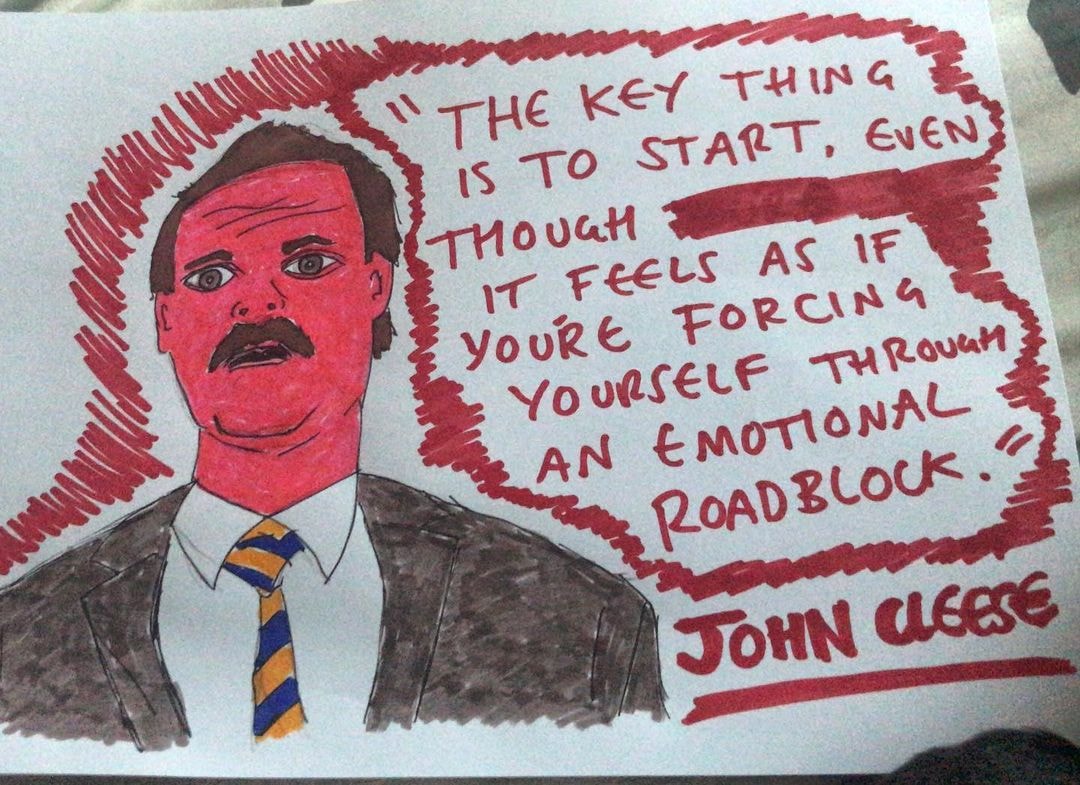 "THE KEY THING
IS TO START, EVEN
THOUGH
IT FEELS AS IF
YOU'RE FORCING
YOURSELF THROUGH
AN EMOTIONAL
ROADBLOCK."
JOHN CLEESE